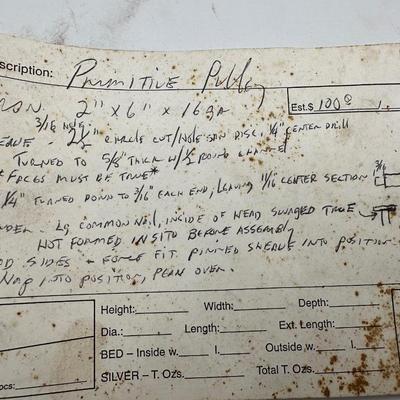 scription: Primitive Pulley
2" x 6" x 16 ga
Est.$ 100
3/16 HOLES
2 1/2" CIRCLE CUT/HOLE SAW DISC, 1/4" CENTER DRILL
TURNED TO 5/8 THICK W/ 1/2 ROUND CHANNEL
*FACES MUST BE TRUE*
1/4" TURNED DOWN TO 3/16" EACH END, LEAVING 11/16 CENTER SECTION
LG COMMON NAIL, INSIDE OF HEAD SWAGED TRUE
HOT FORMED IN SITU BEFORE ASSEMBLY
SIDES - FORCE FIT PINNED SHEAVE INTO POSITION
INTO POSITION, PEEN OVER.
Height: Width: Depth:
Dia.: Length: Ext. Length:
BED – Inside w. l. Outside w. l.
pcs: SILVER – T. Ozs. Total T. Ozs.